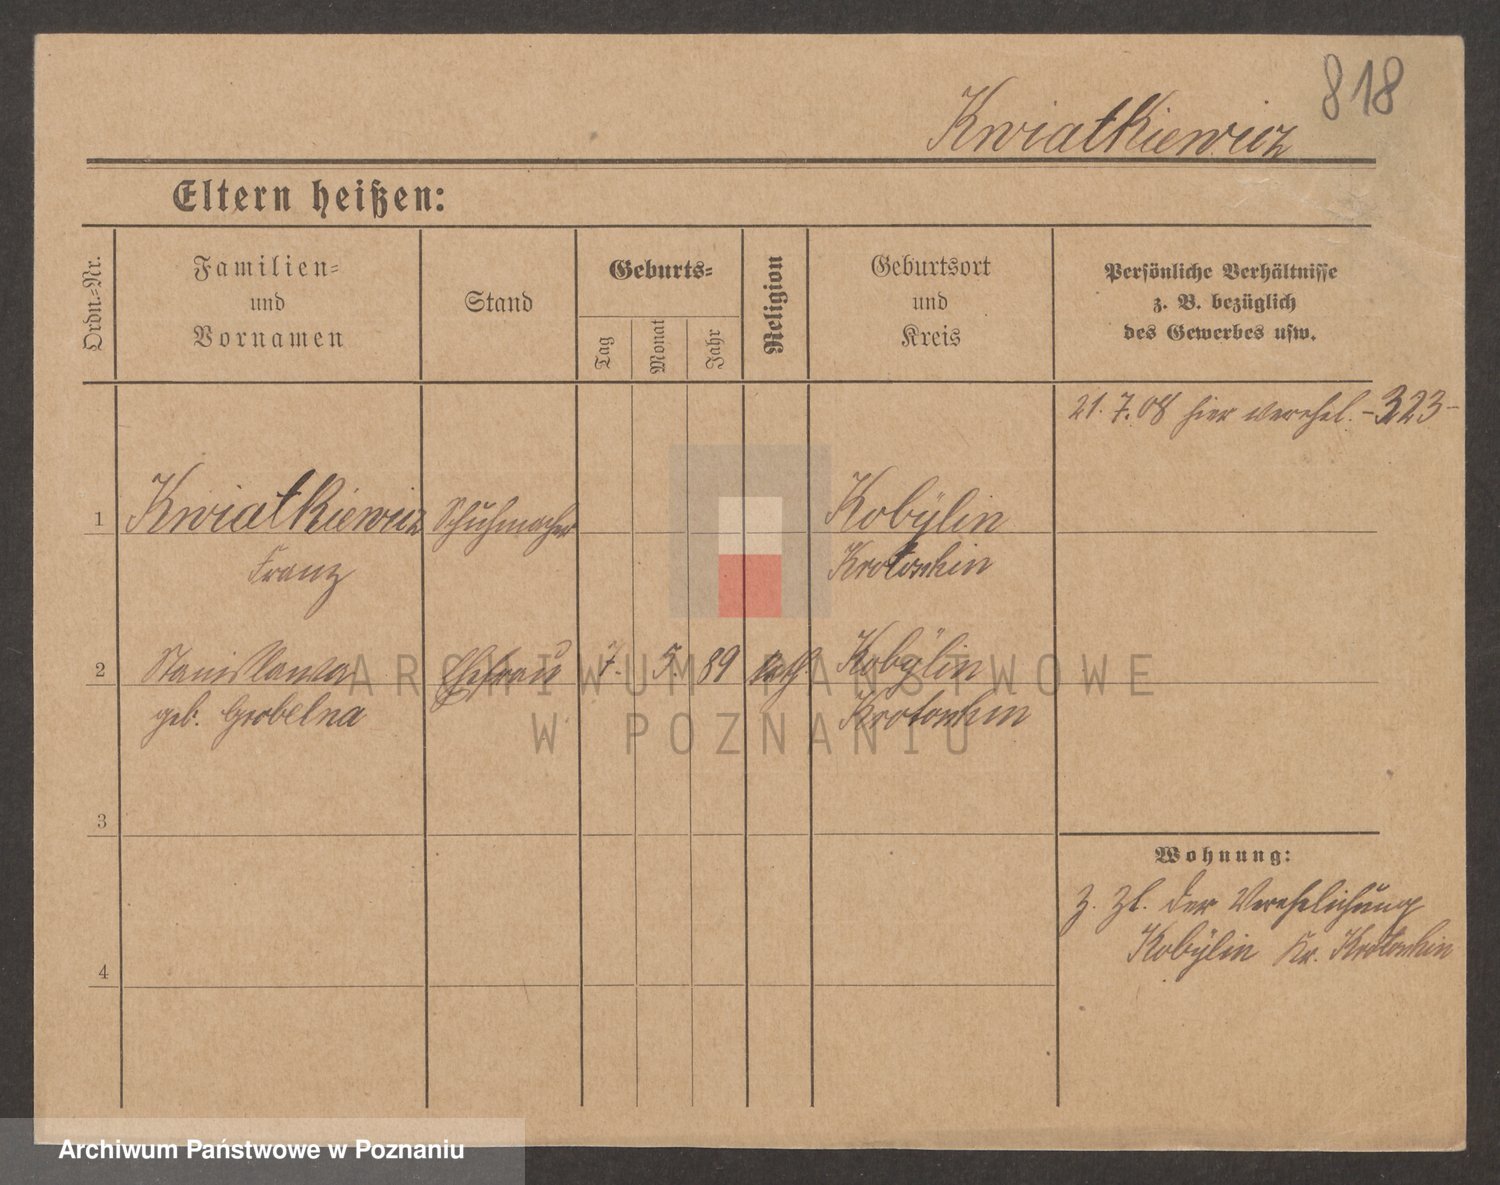 818
Kwiatkiewicz
Eltern heißen:
Ordn.-Nr.
Familien-
und
Vornamen
Stand
Geburts-
Tag
Monat
Jahr
Religion
Geburtsort
und
Kreis
Persönliche Verhältnisse
z. B. bezüglich
des Gewerbes usw.
21.7.08 hier verehel. -323-
1 Kwiatkiewicz Schuhmacher Kobylin
Franz Krotoschin
2 Stanislawa Ehefrau 7. 5. 89 kath Kobylin
geb. Grobelna Krotoschin
ARCHIWUM PAŃSTWOWE
W POZNANIU
3
Wohnung:
z. Zt. der Verehelichung
Kobylin Kr. Krotoschin
4
Archiwum Państwowe w Poznaniu